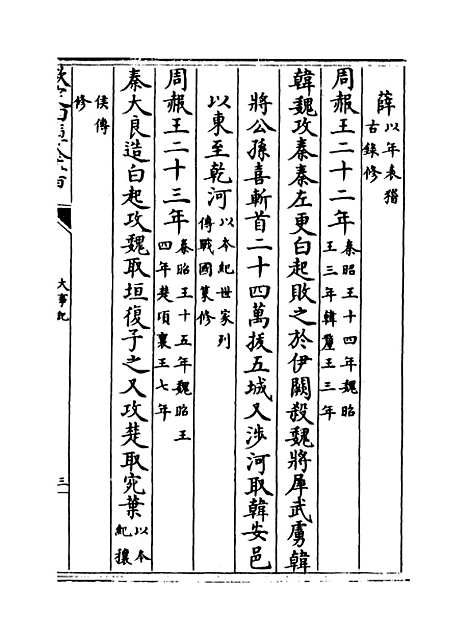 薛以年表稽古錄修
周赧王二十二年秦昭王十四年魏昭王三年韓釐王三年
韓魏攻秦秦左更白起敗之於伊闕殺魏將犀武虜韓
將公孫喜斬首二十四萬拔五城又涉河取韓安邑
以東至乾河以本紀世家列傳戰國策修
周赧王二十三年秦昭王十五年魏昭王四年楚頃襄王七年
秦大良造白起攻魏取垣復予之又攻楚取宛葉以本紀穰
侯傳修
大事記
三一